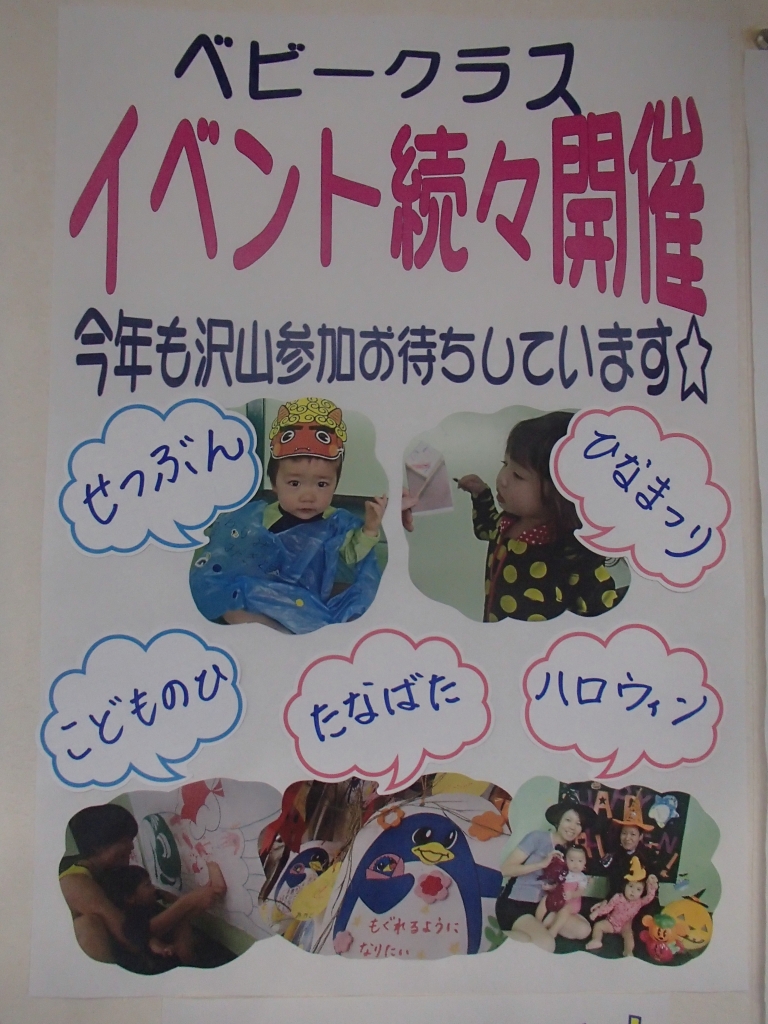 ベビークラス
イベント続々開催
今年も沢山参加お待ちしています☆
せつぶん
ひなまつり
こどものひ
たなばた
ハロウィン
もぐれるように
なりたい